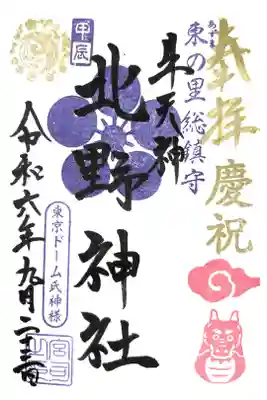 奉拝 慶祝
あずま
東の里総鎮守
牛天神
北野神社
甲辰
令和六年九月二十三日
東京ドーム氏神様
宮司之印